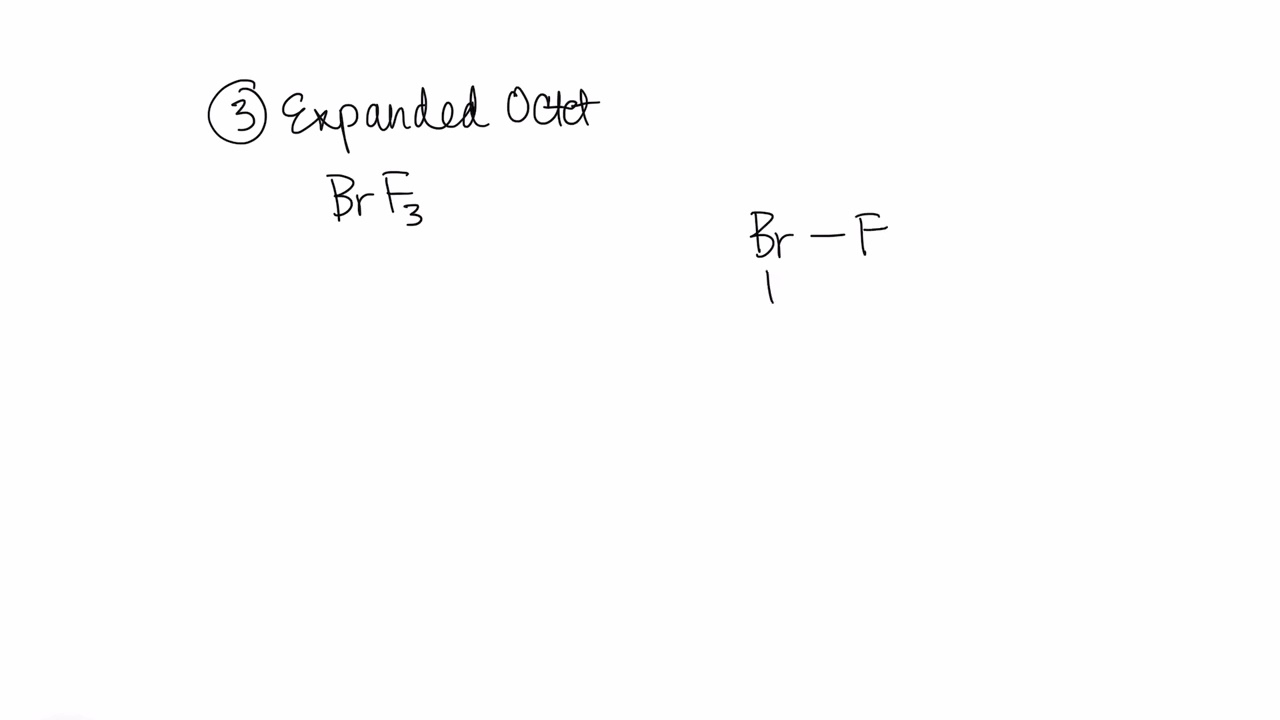 ③ Expanded Octet
BrF₃
Br — F
|